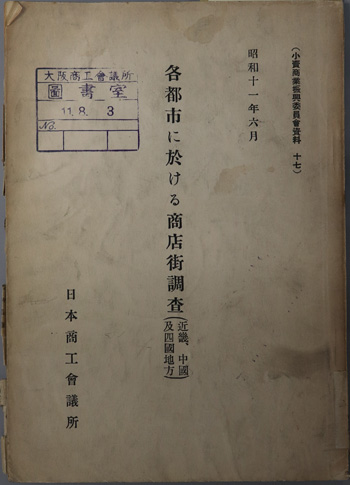 (小賣商業振興委員會資料 十七)
昭和十一年六月
各都市に於ける商店街調査(近畿、中國及四國地方)
日本商工會議所
大阪商工會議所
圖書室
11. 8. 3
No.